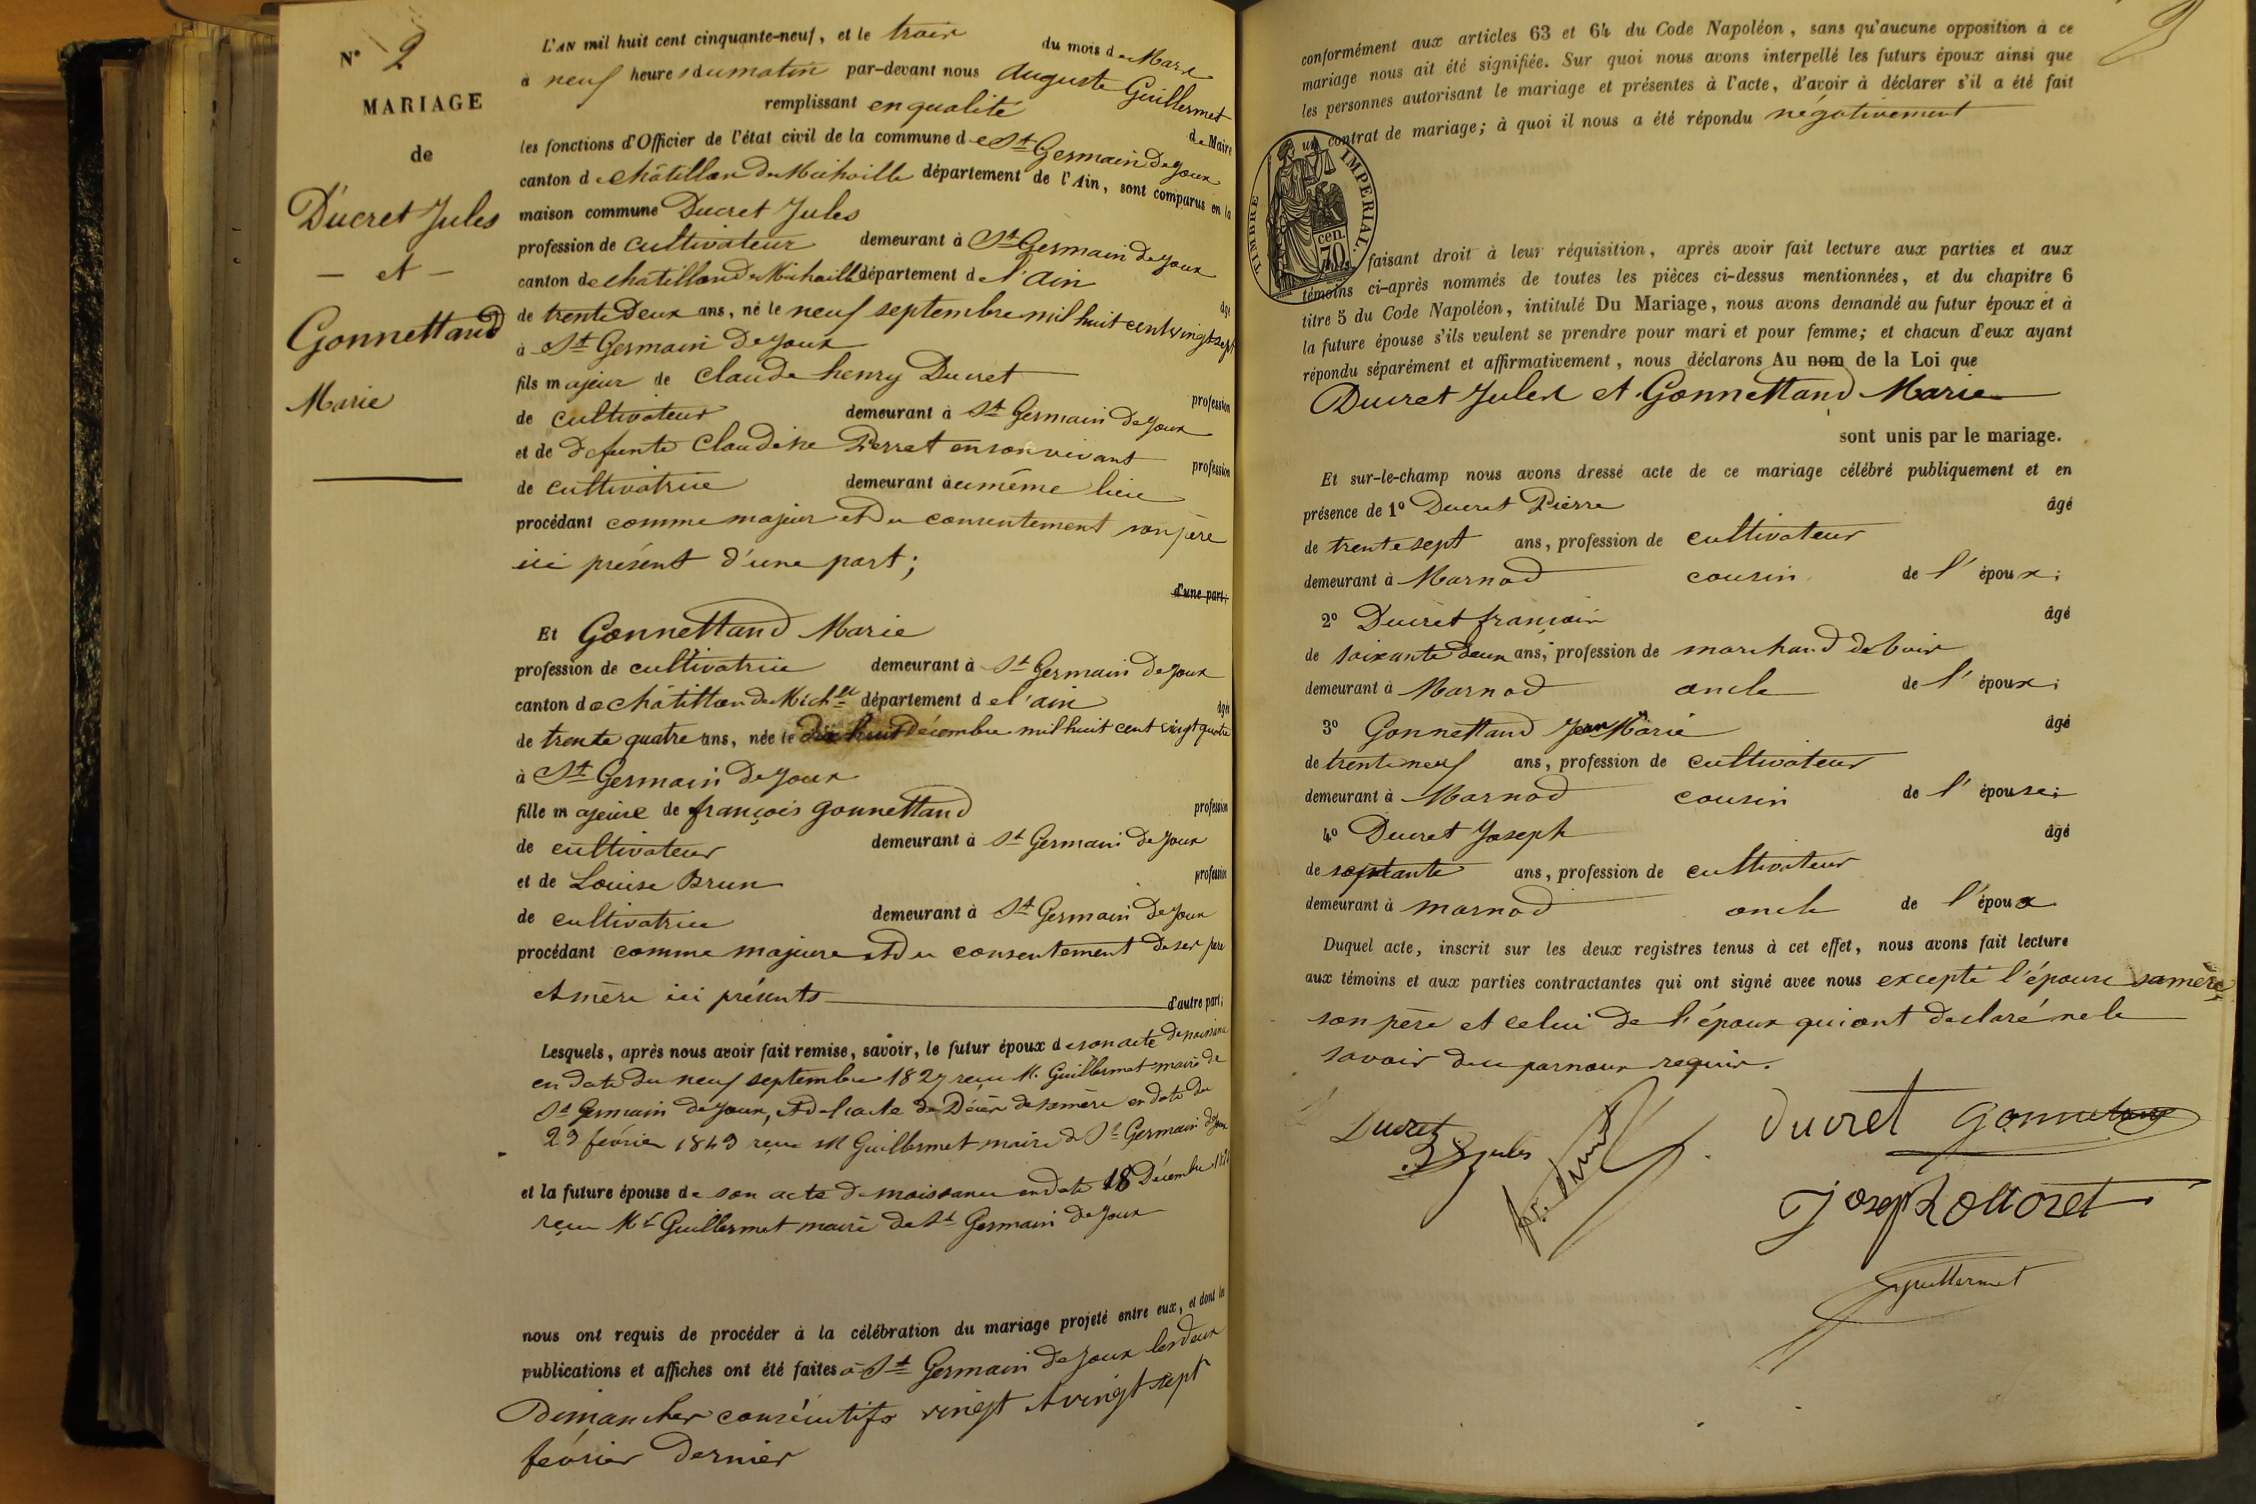 N° 2
MARIAGE
de
Ducret Jules
— et —
Gonnettand
Marie
L'AN mil huit cent cinquante-neuf, et le trois du mois de Mars
à neuf heures du matin par-devant nous Auguste Guillermet
remplissant en qualité de Maire
les fonctions d'Officier de l'état civil de la commune de St Germain de Joux
canton de Châtillon de Michaille département de l'Ain, sont comparus en la
maison commune Ducret Jules
profession de cultivateur demeurant à St Germain de Joux
canton de châtillon de Michaille département de l'Ain âgé
de trente deux ans, né le neuf septembre mil huit cent vingt sept
à St Germain de Joux
fils majeur de Claude henry Ducret profession
de cultivateur demeurant à St Germain de Joux
et de défunte Claudine Perret en son vivant profession
de cultivatrice demeurant au même lieu
procédant comme majeur et du consentement son père
ici présent d'une part;
d'une part;
Et Gonnettand Marie
profession de cultivatrice demeurant à St Germain de Joux
canton de châtillon de Michlle département de l'ain âgée
de trente quatre ans, née le dix huit Décembre mil huit cent vingt quatre
à St Germain de Joux
fille majeure de françois gonnettand profession
de cultivateur demeurant à St Germain de Joux
et de Louise Brun profession
de cultivatrice demeurant à St Germain de Joux
procédant comme majeure et du consentement de ses père
et mère ici présents d'autre part;
Lesquels, après nous avoir fait remise, savoir, le futur époux de son acte de naissance
en date du neuf septembre 1827 reçu M. Guillermet maire de
St Germain de Joux, et de l'acte de Décès de sa mère en date du
23 février 1849 reçu M Guillermet maire de St Germain de Joux
et la future épouse de son acte de naissance en date 18 Décembre 1824
reçu Mr Guillermet maire de St Germain de Joux
nous ont requis de procéder à la célébration du mariage projeté entre eux, et dont les
publications et affiches ont été faites à St Germain de Joux les deux
Dimanches consécutifs vingt et vingt sept
février dernier
conformément aux articles 63 et 64 du Code Napoléon, sans qu'aucune opposition à ce
mariage nous ait été signifiée. Sur quoi nous avons interpellé les futurs époux ainsi que
les personnes autorisant le mariage et présentes à l'acte, d'avoir à déclarer s'il a été fait
un contrat de mariage; à quoi il nous a été répondu négativement
TIMBRE IMPERIAL.
70 cen.
faisant droit à leur réquisition, après avoir fait lecture aux parties et aux
témoins ci-après nommés de toutes les pièces ci-dessus mentionnées, et du chapitre 6
titre 5 du Code Napoléon, intitulé Du Mariage, nous avons demandé au futur époux et à
la future épouse s'ils veulent se prendre pour mari et pour femme; et chacun d'eux ayant
répondu séparément et affirmativement, nous déclarons Au nom de la Loi que
Ducret Jules et Gonnettand Marie
sont unis par le mariage.
Et sur-le-champ nous avons dressé acte de ce mariage célébré publiquement et en
présence de 1° Ducret Pierre âgé
de trente sept ans, profession de cultivateur
demeurant à Marnod cousin de l'époux;
2° Ducret françois âgé
de soixante deux ans, profession de marchand de bois
demeurant à Marnod oncle de l'époux;
3° Gonnettand Jean Marie âgé
de trente neuf ans, profession de cultivateur
demeurant à Marnod cousin de l'épouse;
4° Ducret Joseph âgé
de septante ans, profession de cultivateur
demeurant à marnod oncle de l'époux
Duquel acte, inscrit sur les deux registres tenus à cet effet, nous avons fait lecture
aux témoins et aux parties contractantes qui ont signé avec nous excepté l'épouse sa mère,
son père et celui de l'époux qui ont declaré ne le
savoir de ce par nous requis.
Ducret Jules
Ducret Gonnettand
Joseph
Guillermet